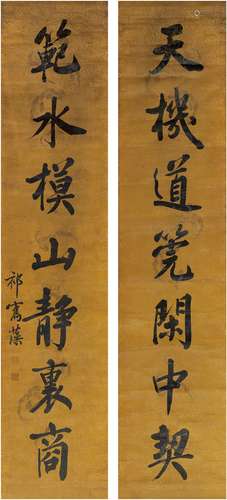 天機道筦閑中契
範水模山靜裏商
祁寯藻